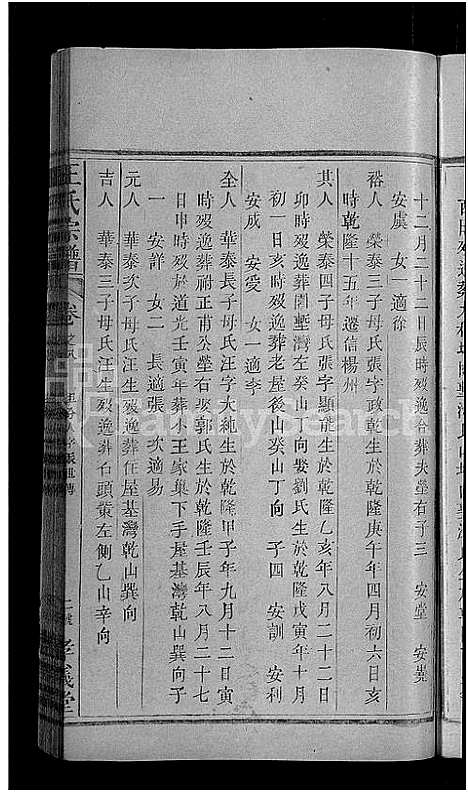 十二月二十二日辰時歿逸合葬夫塋右子三 安堂 安堯
安虞 女一適徐
裕人 榮泰三子母氏張字政乾生於乾隆庚午年四月初六日亥
時乾隆十五年遷信楊州
其人 榮泰四子母氏張字顯能生於乾隆乙亥年八月二十二日
卯時歿逸葬園塹灣左癸山向娶劉氏生於乾隆戊寅年十月
初一日亥時歿逸葬老屋後山癸山丁向 子四 安訓 安利
安成 安愛 女一適李
全人 華泰長子母氏汪字大純生於乾隆甲子年九月十二日寅
時歿逸葬祠正甫公塋右娶郭氏生於乾隆壬辰年八月二十七
日申時歿於道光壬寅年葬小王家集下手屋基灣乾山巽向子
一 安詳 女二 長適張 次適易
元人 華泰次子母氏汪生歿逸葬住屋基灣乾山巽向
吉人 華泰三子母氏汪生歿逸葬石頭塘左側乙山辛向
王氏宗譜
卷之八
孝義堂
FamilySearch